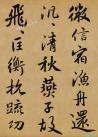 微信宿漁舟還
汎〻清秋燕子故
飛〻匡衡抗疏功